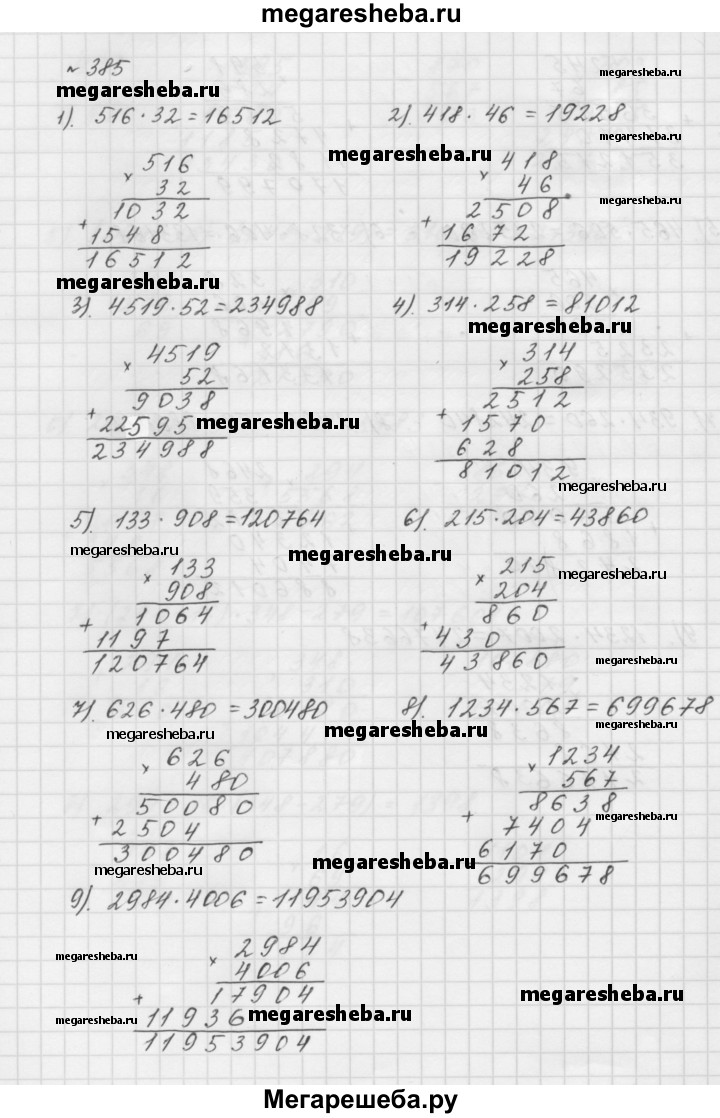 megaresheba.ru
№ 385
megaresheba.ru megaresheba.ru
1). 516 · 32 = 16512 2). 418 · 46 = 19228
megaresheba.ru
megaresheba.ru
× 516 × 418
32 46
megaresheba.ru
1032 2508
+ 1548 + 1672
16512 19228
megaresheba.ru
3). 4519 · 52 = 234988 4). 314 · 258 = 81012
megaresheba.ru
× 4519 × 314
52 258
9038 2512
+ 22595 megaresheba.ru + 1570
234988 628
81012
megaresheba.ru
5). 133 · 908 = 120764 6). 215 · 204 = 43860
megaresheba.ru megaresheba.ru
× 133 × 215 megaresheba.ru
908 204
1064 860
+ 1197 + 430
120764 43860 megaresheba.ru
7). 626 · 480 = 300480 8). 1234 · 567 = 699678
megaresheba.ru megaresheba.ru megaresheba.ru
× 626 × 1234
480 567
50080 8638 megaresheba.ru
+ 2504 + 7404
300480 6170
megaresheba.ru megaresheba.ru 699678
9). 2984 · 4006 = 11953904
× 2984
megaresheba.ru 4006
17904 megaresheba.ru
megaresheba.ru + 11936 megaresheba.ru
11953904
Мегарешеба.ру